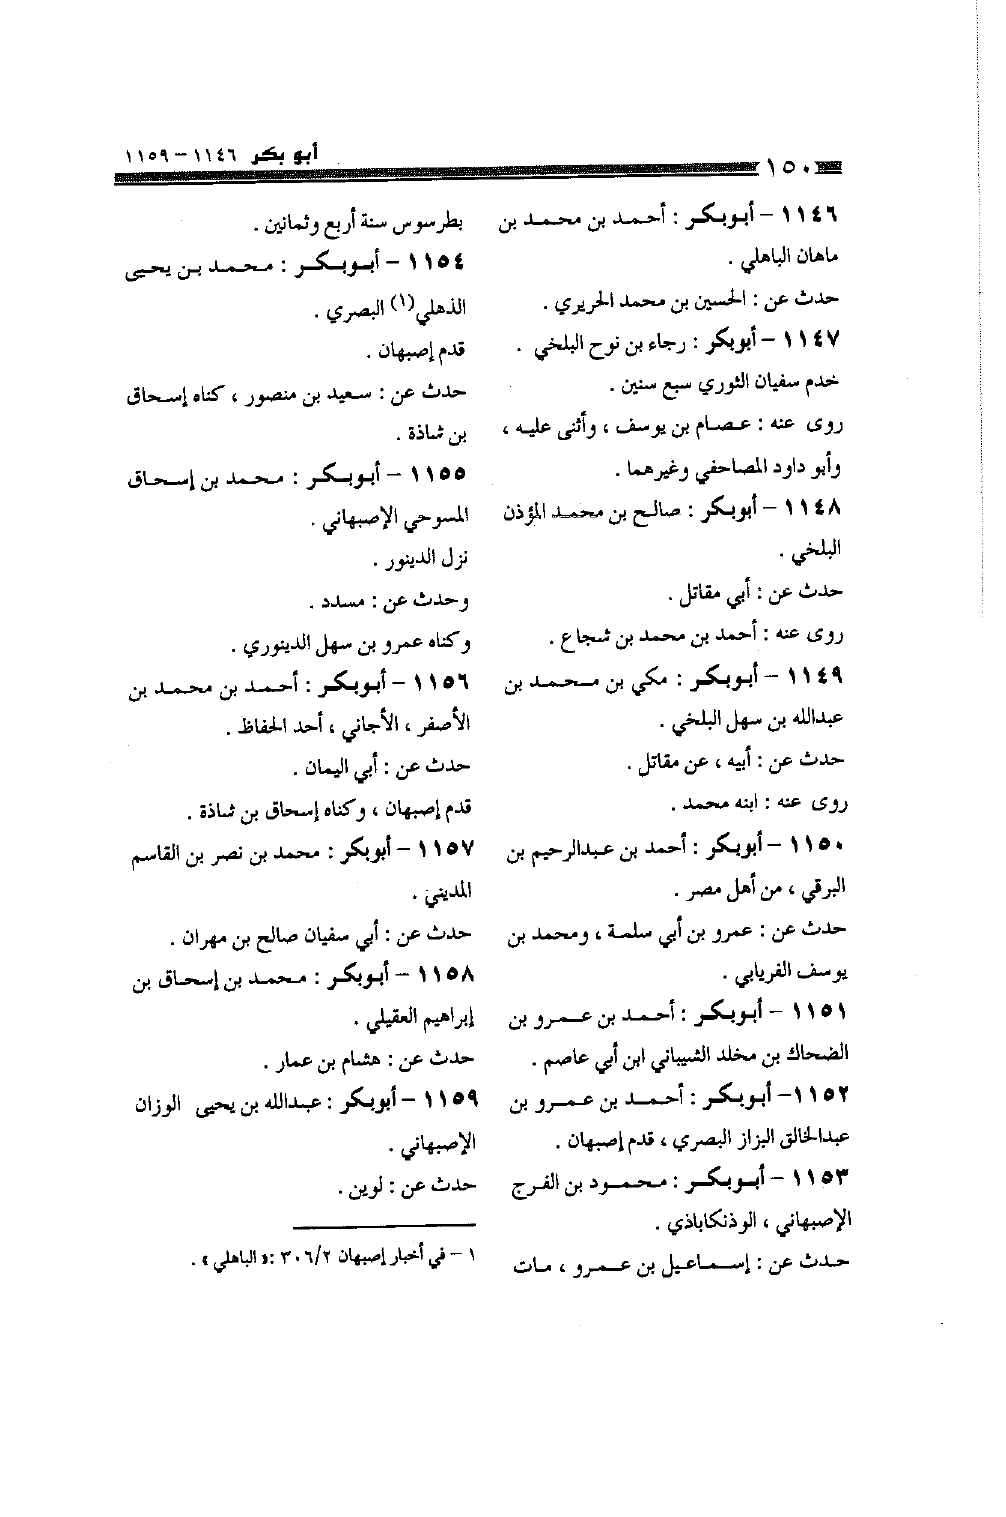 ١٥٠
أبو بكر ١١٤٦ – ١١٥٩
١١٤٦ – أبوبكر : أحمد بن محمد بن
ماهان الباهلي .
حدث عن : الحسين بن محمد الحريري .
١١٤٧ – أبوبكر : رجاء بن نوح البلخي .
خدم سفيان الثوري سبع سنين .
روى عنه : عصام بن يوسف ، وأثنى عليه ،
وأبو داود المصاحفي وغيرهما .
١١٤٨ – أبوبكر : صالح بن محمد المؤذن
البلخي .
حدث عن : أبي مقاتل .
روى عنه : أحمد بن محمد بن شجاع .
١١٤٩ – أبوبكر : مكي بن محمد بن
عبدالله بن سهل البلخي .
حدث عن : أبيه ، عن مقاتل .
روى عنه : ابنه محمد .
١١٥٠ – أبوبكر : أحمد بن عبدالرحيم بن
البرقي ، من أهل مصر .
حدث عن : عمرو بن أبي سلمة ، ومحمد بن
يوسف الفريابي .
١١٥١ – أبوبكر : أحمد بن عمرو بن
الضحاك بن مخلد الشيباني ابن أبي عاصم .
١١٥٢– أبوبكر : أحمد بن عمرو بن
عبدالخالق البزاز البصري ، قدم إصبهان .
١١٥٣ – أبوبكر : محمود بن الفرج
الإصبهاني ، الوذنكاباذي .
حدث عن : إسماعيل بن عمرو ، مات
بطرسوس سنة أربع وثمانين .
١١٥٤ – أبوبكر : محمد بن يحيى
الذهلي(١) البصري .
قدم إصبهان .
حدث عن : سعيد بن منصور ، كناه إسحاق
بن شاذة .
١١٥٥ – أبوبكر : محمد بن إسحاق
المسوحي الإصبهاني .
نزل الدينور .
وحدث عن : مسدد .
وكناه عمرو بن سهل الدينوري .
١١٥٦ – أبوبكر : أحمد بن محمد بن
الأصفر ، الأجاني ، أحد الحفاظ .
حدث عن : أبي اليمان .
قدم إصبهان ، وكناه إسحاق بن شاذة .
١١٥٧ – أبوبكر : محمد بن نصر بن القاسم
المديني .
حدث عن : أبي سفيان صالح بن مهران .
١١٥٨ – أبوبكر : محمد بن إسحاق بن
إبراهيم العقيلي .
حدث عن : هشام بن عمار .
١١٥٩ – أبوبكر : عبدالله بن يحيى الوزان
الإصبهاني .
حدث عن : لوين .
١ – في أخبار إصبهان ٣٠٦/٢ :« الباهلي » .